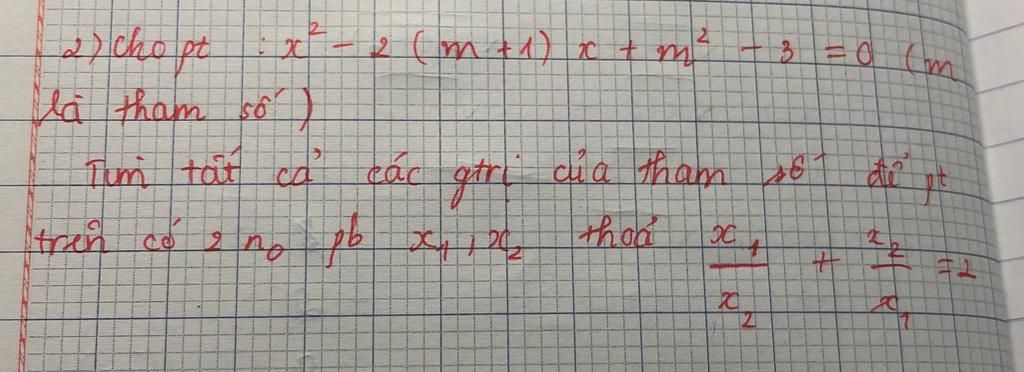 2) Cho pt : x² - 2 (m +1) x + m² - 3 = 0 (m
là tham số)
Tìm tất cả các gtrị của tham số để pt
trên có 2 n₀ pb x₁, x₂ thoả x₁/x₂ + x₂/x₁ = 2